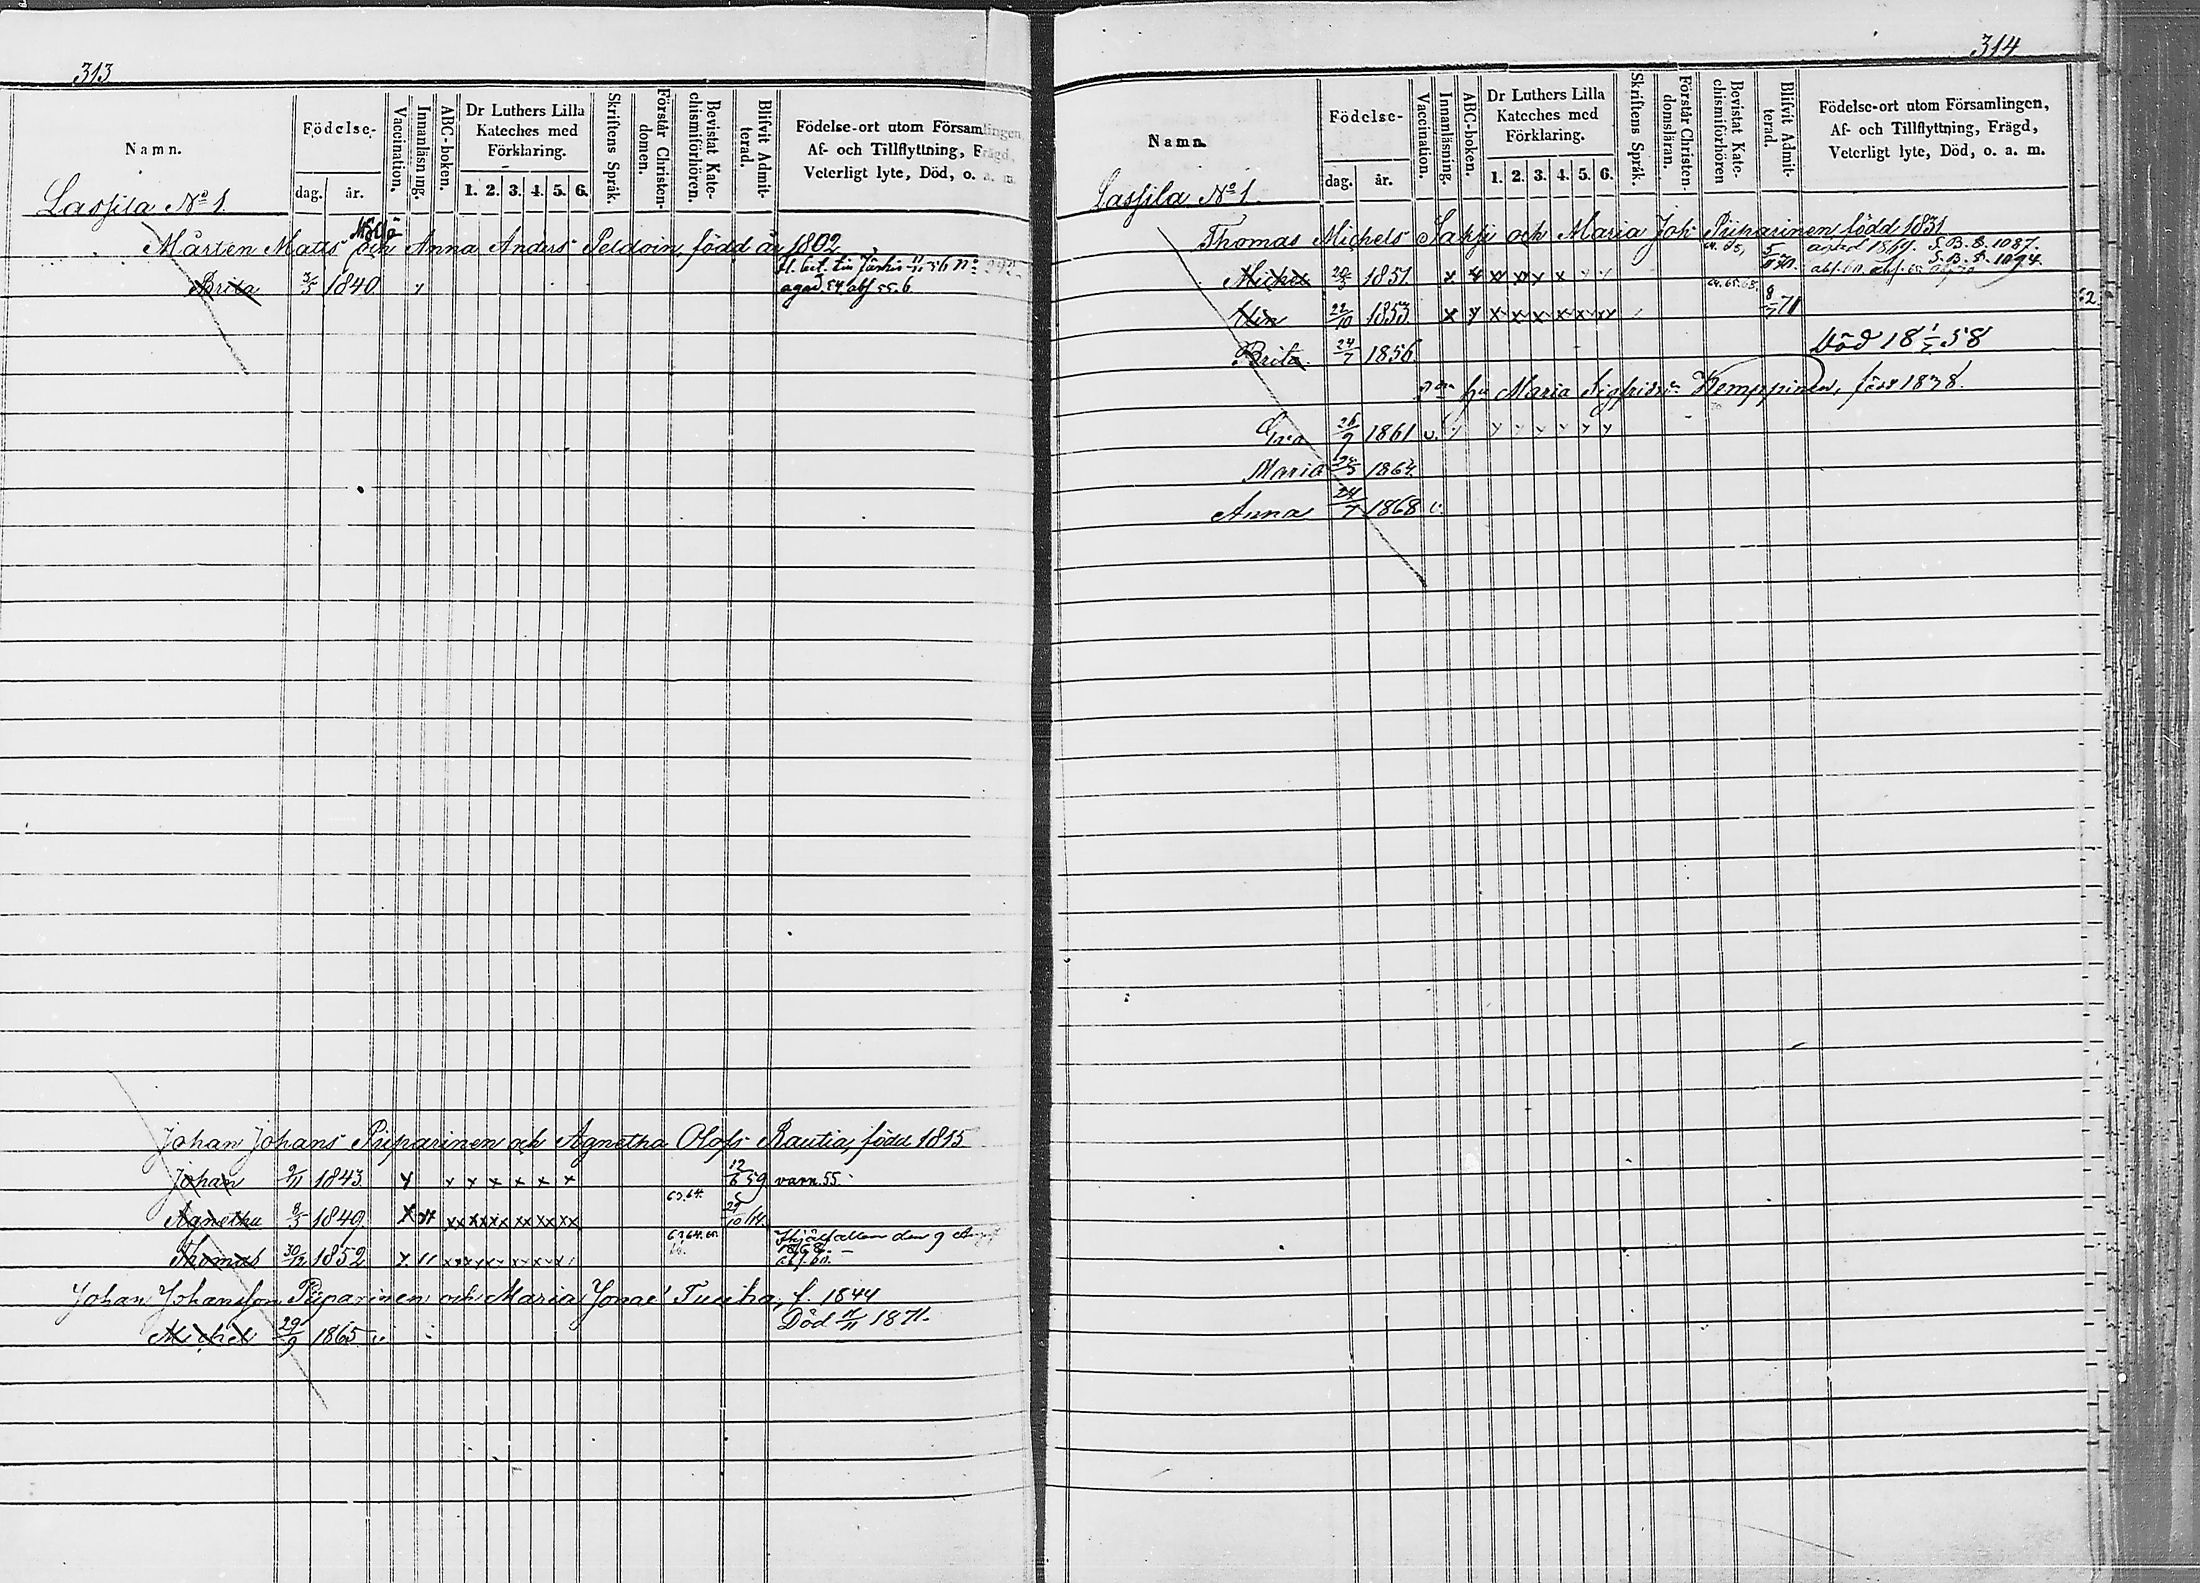 313
Namn.
Födelse-
dag. år.
Vaccination.
Innanläsning.
ABC-boken.
Dr Luthers Lilla
Kateches med
Förklaring.
1. 2. 3. 4. 5. 6.
Skriftens Språk.
Förstår Christen-
domen.
Bevistat Kate-
chismiförhören.
Blifvit Admit-
terad.
Födelse-ort utom Församlingen,
Af- och Tillflyttning, Frägd,
Veterligt lyte, Död, o. a. m.
Lassila No 1.
Mårten Matts och Anna Anders Peldoin, född år 1802
Brita 3/5 1840
Johan Johans Piiparinen och Agnetha Olofs Rautia, född 1815
Johan 9/11 1843 x x x x x x x 12/6 59 varn. 55.
63.64.
Agnetha 8/3 1849 29/10
63.64.
Thomas 30/12 1852 den 9
1868.
Johan Johansson Piiparinen och Maria Jonae f. 1844
Michel 29/9 1865 v. Död 11/11 1871.
314
Namn.
Födelse-
dag. år.
Vaccination.
Innanläsning.
ABC-boken.
Dr Luthers Lilla
Kateches med
Förklaring.
1. 2. 3. 4. 5. 6.
Skriftens Språk.
Förstår Christen-
domsläran.
Bevistat Kate-
chismiförhören
Blifvit Admit-
terad.
Födelse-ort utom Församlingen,
Af- och Tillflyttning, Frägd,
Veterligt lyte, Död, o. a. m.
Lassila No 1.
Thomas Michels och Maria Joh Piiparinen född 1831
1869. S.B.S. 1087.
S.B.S. 1094.
Michel 1851.
64.65.68.
Elin 22/10 1853. x x x x x x x 8/7 71
Brita 24/7 1856 Död 18 58
hu Maria Sigfrids Kemppinen, född 1838.
Eva 26/9 1861 v.
Maria 1864.
Anna 24/7 1868 v.